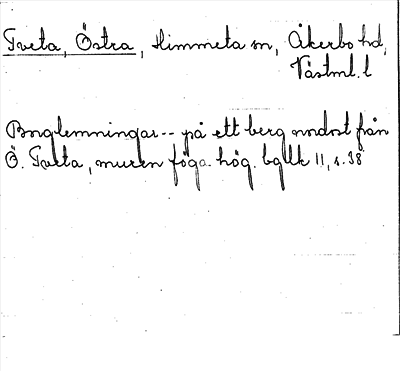 Tveta, Östra, Himmeta sn, Åkerbo hd,
Västml. l
Borglemningar -- på ett berg nordost från
Ö. Tveta, muren föga hög. bgllk 11, s. 38